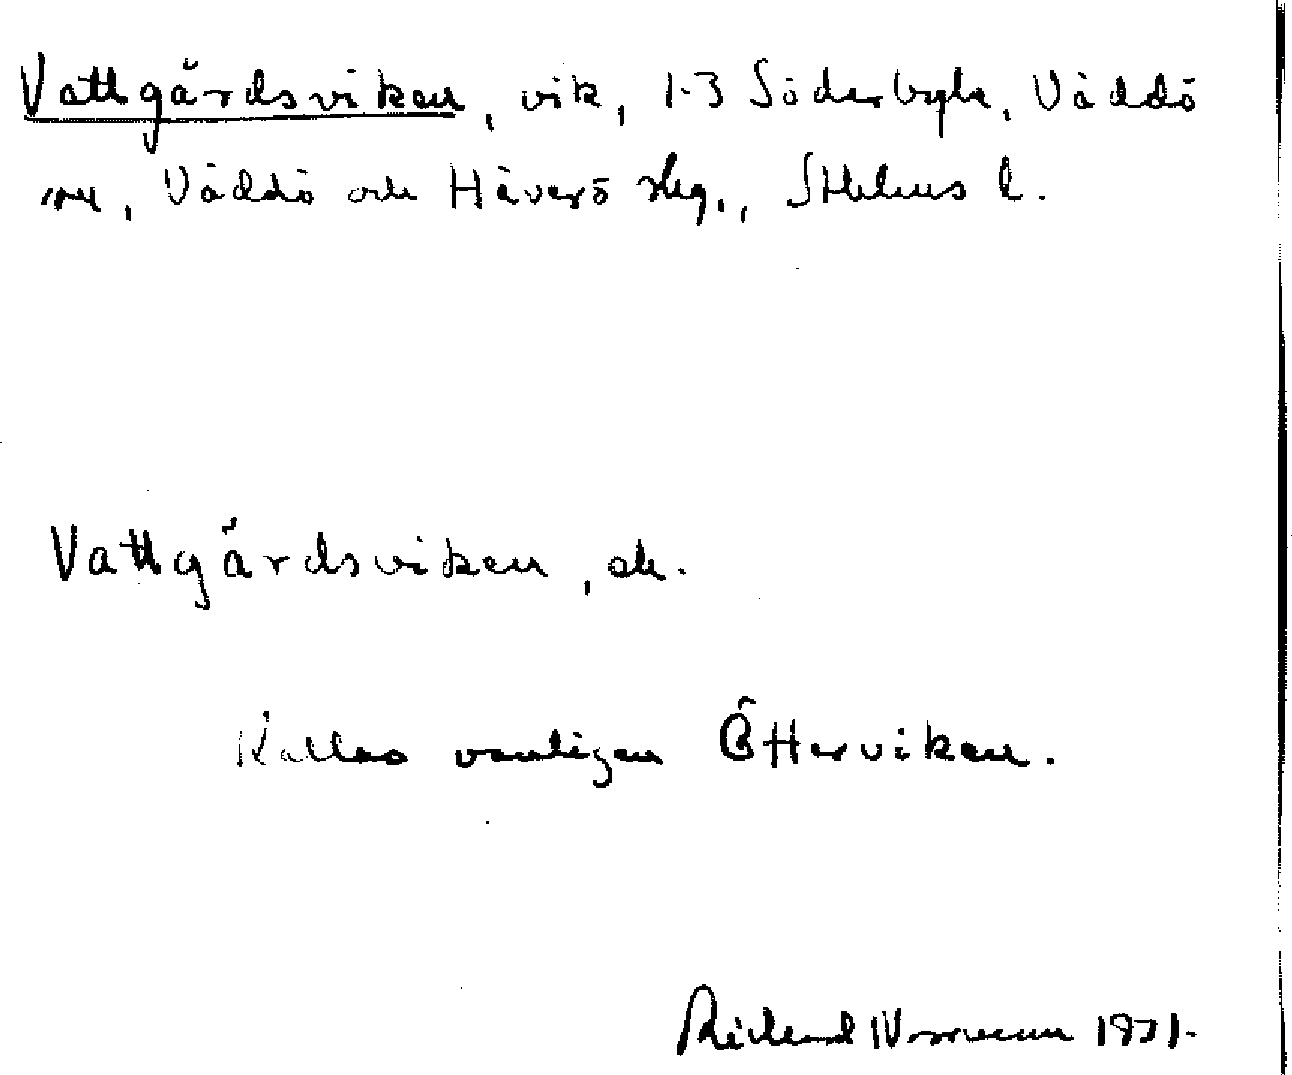 Vattgårdsviken, vik, 1-3 Söderbyle, Väddö
sn, Väddö och Häverö skg., Sthlms l.
Vattgårdsviken, ek.
Kallas vanligen Ötterviken.
Rickard Wormman 1931.